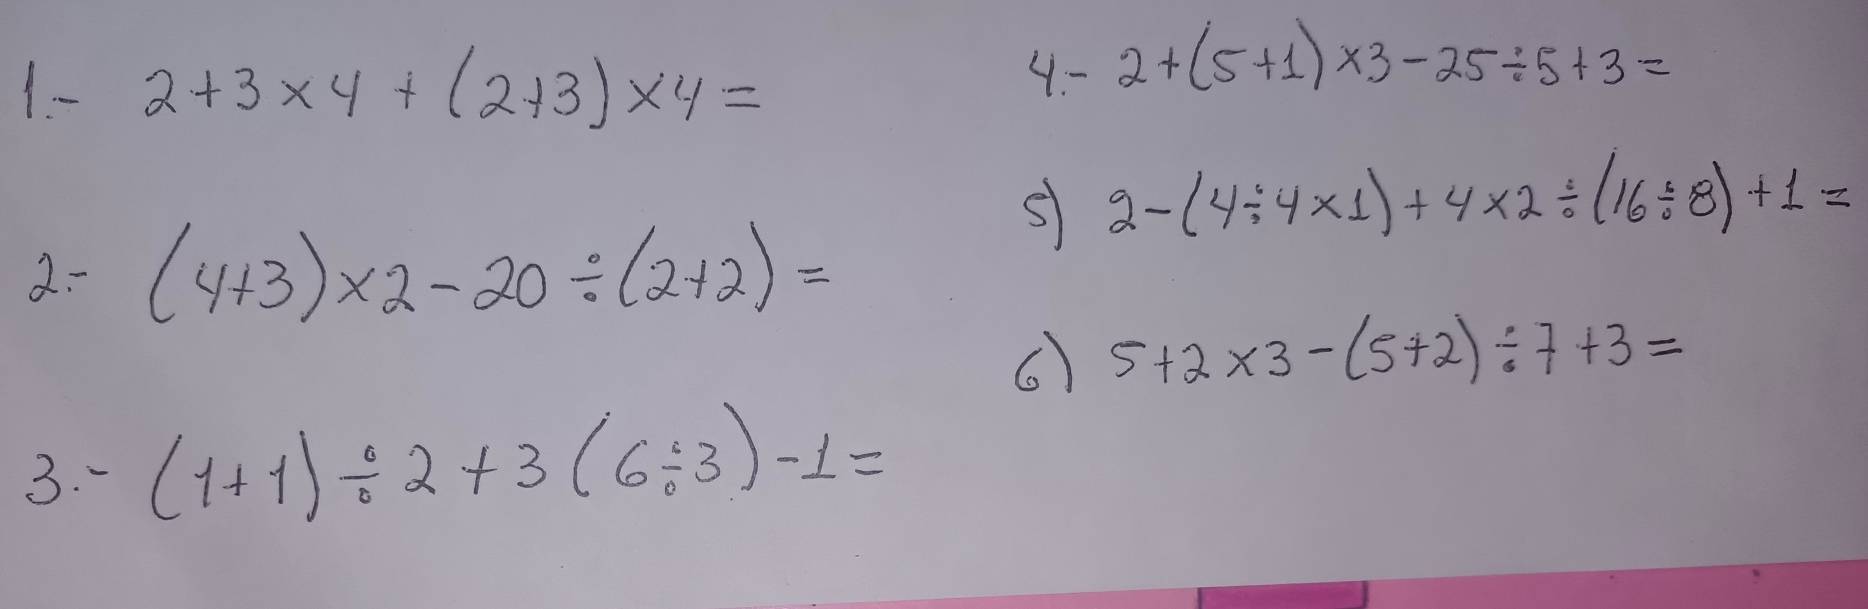 1.- 2+3×4+(2+3)×4=
2.- (4+3)×2-20÷(2+2)=
3.- (1+1)÷2+3(6÷3)-1=
4.- 2+(5+1)×3-25÷5+3=
5) 2-(4÷4×1)+4×2÷(16÷8)+1=
6) 5+2×3-(5+2)÷7+3=